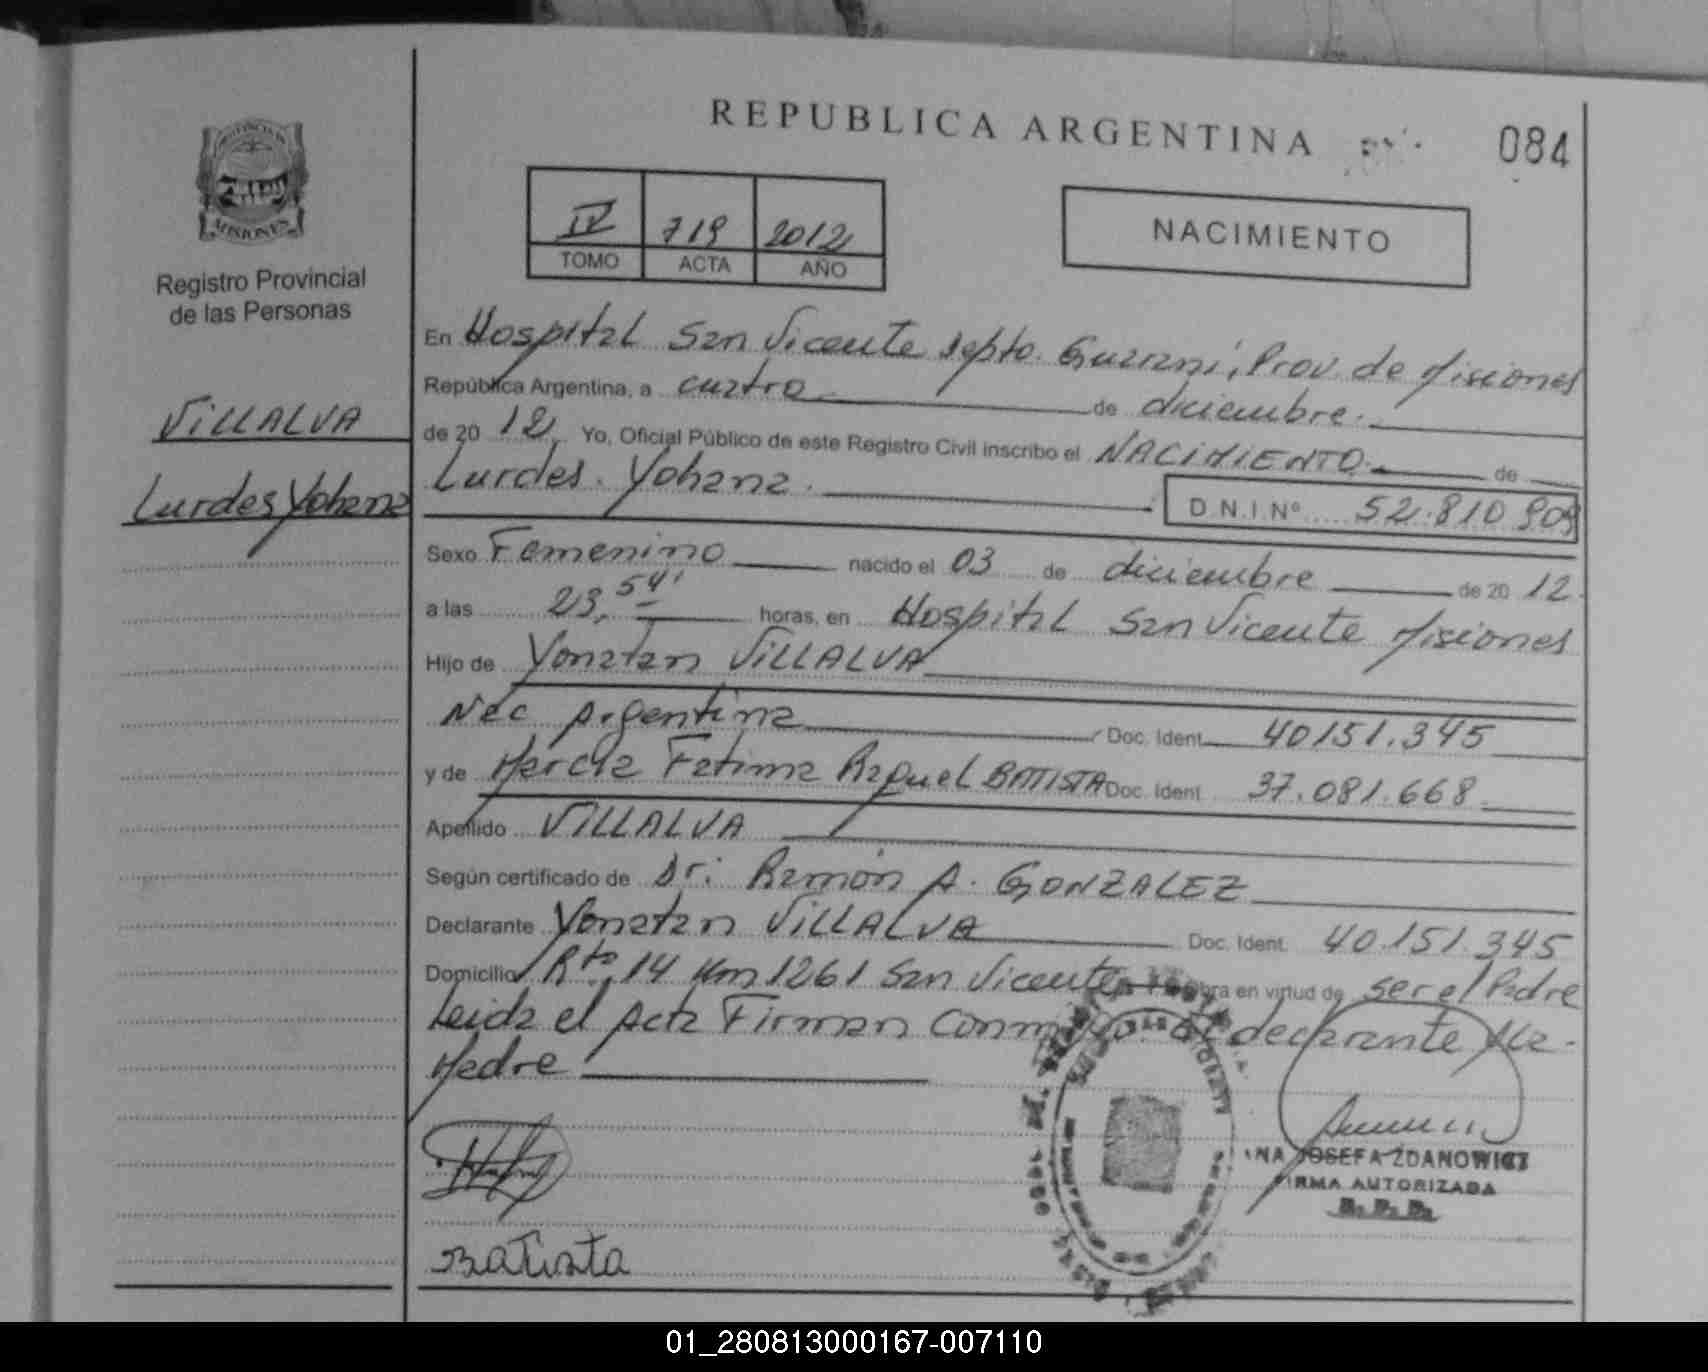 REPUBLICA ARGENTINA
084
PROVINCIA DE
MISIONES
Registro Provincial
de las Personas
VILLALVA
Lurdes Yohana
IV 719 2012
TOMO ACTA AÑO
NACIMIENTO
En Hospital San Vicente Depto. Guaraní, Prov. de Misiones
República Argentina, a cuatro de diciembre.
de 20 12. Yo, Oficial Público de este Registro Civil inscribo el NACIMIENTO de
Lurdes. Yohana.
D.N.I. Nº 52.810 909
Sexo Femenino nacido el 03 de diciembre de 20 12.
a las 23,54' horas, en Hospital San Vicente Misiones
Hijo de Yonatan VILLALVA
Nac Argentina Doc. Ident. 40151.345
y de Marcia Fatima Raquel BATISTA Doc. Ident. 37.081.668
Apellido VILLALVA
Según certificado de Dr: Ramón A. GONZALEZ
Declarante Yonatan VILLALVA Doc. Ident. 40.151.345
Domicilio Rta 14 Km 1261 San Vicente Obra en virtud de ser el Padre
Leida el Acta Firman Conmigo. el declarante y la
Madre
JOSEFA ZDANOWICZ
FIRMA AUTORIZADA
R. P. P.
Batista
01_280813000167-007110